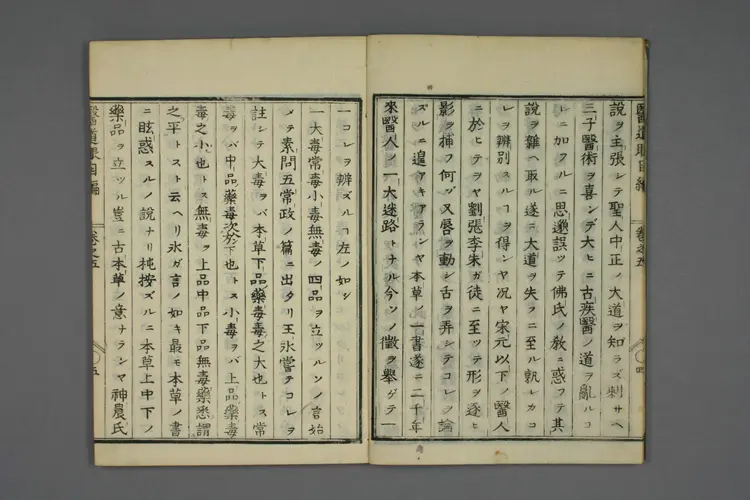 說ヲ主張シテ聖人中正ノ大道ヲ知ラズ刺サヘ
三子醫術ヲ喜ンデ大ヒニ古疾醫ノ道ヲ亂ルコ
レニ加フルニ思邈誤ツテ佛氏ノ敎ニ惑フテ其
說ヲ雜ヘ取ル遂ニ大道ヲ失フニ至ル孰レカコ
レヲ辨別スルコヲ得ンヤ况ヤ宋元以下ノ醫人
ニ於ヒテヲヤ劉張李朱ガ徒ニ至ツテ形ヲ逐ヒ
影ヲ捕フ何ゾ又唇ヲ動シ舌ヲ弄シテコレヲ論
ズルニ遑アキアランヤ本草ノ一書遂ニ二千年
來醫人ノ一大迷路トナル今ソノ徵ヲ舉ゲテ一
一コレヲ辨ズルコ左ノ如シ
一大毒常毒小毒無毒ノ四品ヲ立ツルソノ言始
メテ素問五常政ノ篇ニ出タリ王氷嘗テコレヲ
註シテ大毒ヲバ本草下品藥毒毒之大也トス常
毒ヲバ中品藥毒次於下也トス小毒ヲバ上品藥毒
毒之小也トス無毒ヲ上品中品下品無毒藥悉謂
之平トスト云ヘリ氷ガ言ノ如キ最モ本草ノ書
ニ眩惑スルノ說ナリ㭷按ズルニ本草上中下ノ
藥品ヲ立ツル豈ニ古本草ノ意ナランヤ神農氏
醫道眼目編 卷之五 五